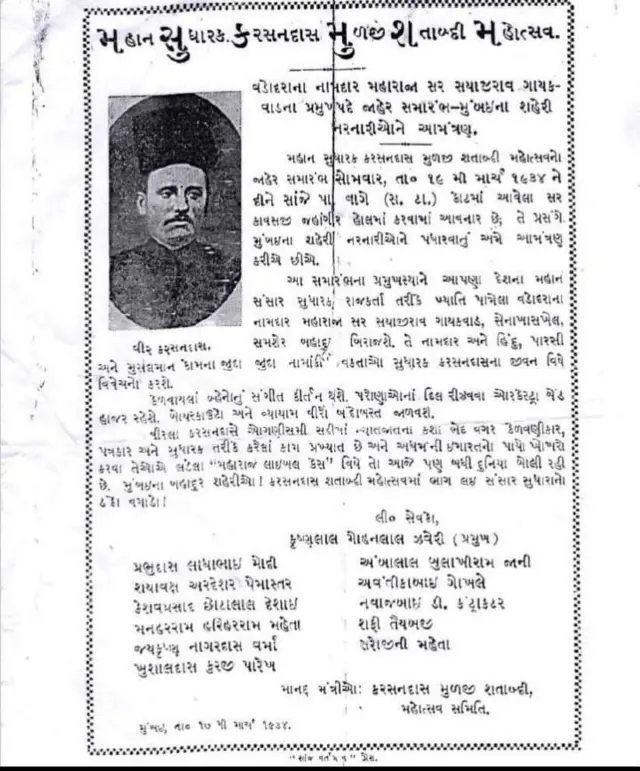 મહાન સુધારક કરસનદાસ મુળજી શતાબ્દી મહોત્સવ.
વડોદરાના નામદાર મહારાજા સર સયાજીરાવ ગાયક-
વાડના પ્રમુખપદે જાહેર સમારંભ-મુંબઇના શહેરી
નરનારીઓને આમંત્રણ.
મહાન સુધારક કરસનદાસ મુળજી શતાબ્દી મહોત્સવનો
જાહેર સમારંભ સોમવાર, તા૦ ૧૯ મી માર્ચ ૧૯૩૪ ને
દીને સાંજે પા વાગે (સ. ટા.) કોટમાં આવેલા સર
કાવસજી જહાંગીર હોલમાં કરવામાં આવનાર છે; તે પ્રસંગે
મુંબઇના શહેરી નરનારીઓને પધારવાનું અમે આમંત્રણ
કરીએ છીએ.
આ સમારંભના પ્રમુખસ્થાને આપણા દેશના મહાન
સંસાર સુધારક, રાજકર્તા તરીકે ખ્યાતિ પામેલા વડોદરાના
નામદાર મહારાજા સર સયાજીરાવ ગાયકવાડ, સેનાખાસખેલ,
સમશેર બહાદુર બિરાજશે. તે નામદાર અને હિંદુ, પારસી
વીર કરસનદાસ.
અને મુસલમાન કોમના જુદા જુદા નામાંકી વકતાઓ સુધારક કરસનદાસના જીવન વિષે
વિવેચનો કરશે.
કેળવાયલાં બહેનોનું સંગીત કીર્તન થશે. પરોણાઓનાં દિલ રીઝવવા ઓરકેસ્ટ્રા બેંડ
હાજર રહેશે. બોયસ્કાઉટો અને વ્યાયામ વીરો બંદોબસ્ત જાળવશે.
વીરલા કરસનદાસે ઓગણીસમી સદીમાં ન્યાતજાતના કશા ભેદ વગર કેળવણીકાર,
પત્રકાર અને સુધારક તરીકે કરેલાં કામ પ્રખ્યાત છે અને અધર્મની ઇમારતનો પાયો ખોખરો
કરવા તેઓએ લડેલા "મહારાજ લાઇબલ કેસ" વિષે તો આજે પણ બધી દુનિયા બોલી રહી
છે. મુંબઇના બહાદુર શહેરીઓ! કરસનદાસ શતાબ્દી મહોત્સવમાં ભાગ લઇ સંસાર સુધારાનો
ડંકો વગાડો!
લી૦ સેવકો,
કૃષ્ણલાલ મોહનલાલ ઝવેરી (પ્રમુખ)
પ્રભુદાસ લાધાભાઇ મોદી
શયાવક્ષ અરદેશર પેમાસ્તર
કેશવપ્રસાદ છોટાલાલ દેશાઇ
મનહરરામ હરિહરરામ મહેતા
જયકૃષ્ણ નાગરદાસ વર્મા
ખુશાલદાસ કુરજી પારેખ
અંબાલાલ બુલાખીરામ જાની
અવંતીકાબાઇ ગોખલે
નવાજબાઇ ડી. કંટ્રાકટર
શફી તૈયબજી
સરોજીની મહેતા
માનદ મંત્રીઓ: કરસનદાસ મુળજી શતાબ્દી,
મહોત્સવ સમિતિ.
મુંબઇ, તા૦ ૧૭ મી માર્ચ ૧૯૩૪.
"સાંજ વર્તમાન" પ્રેસ.